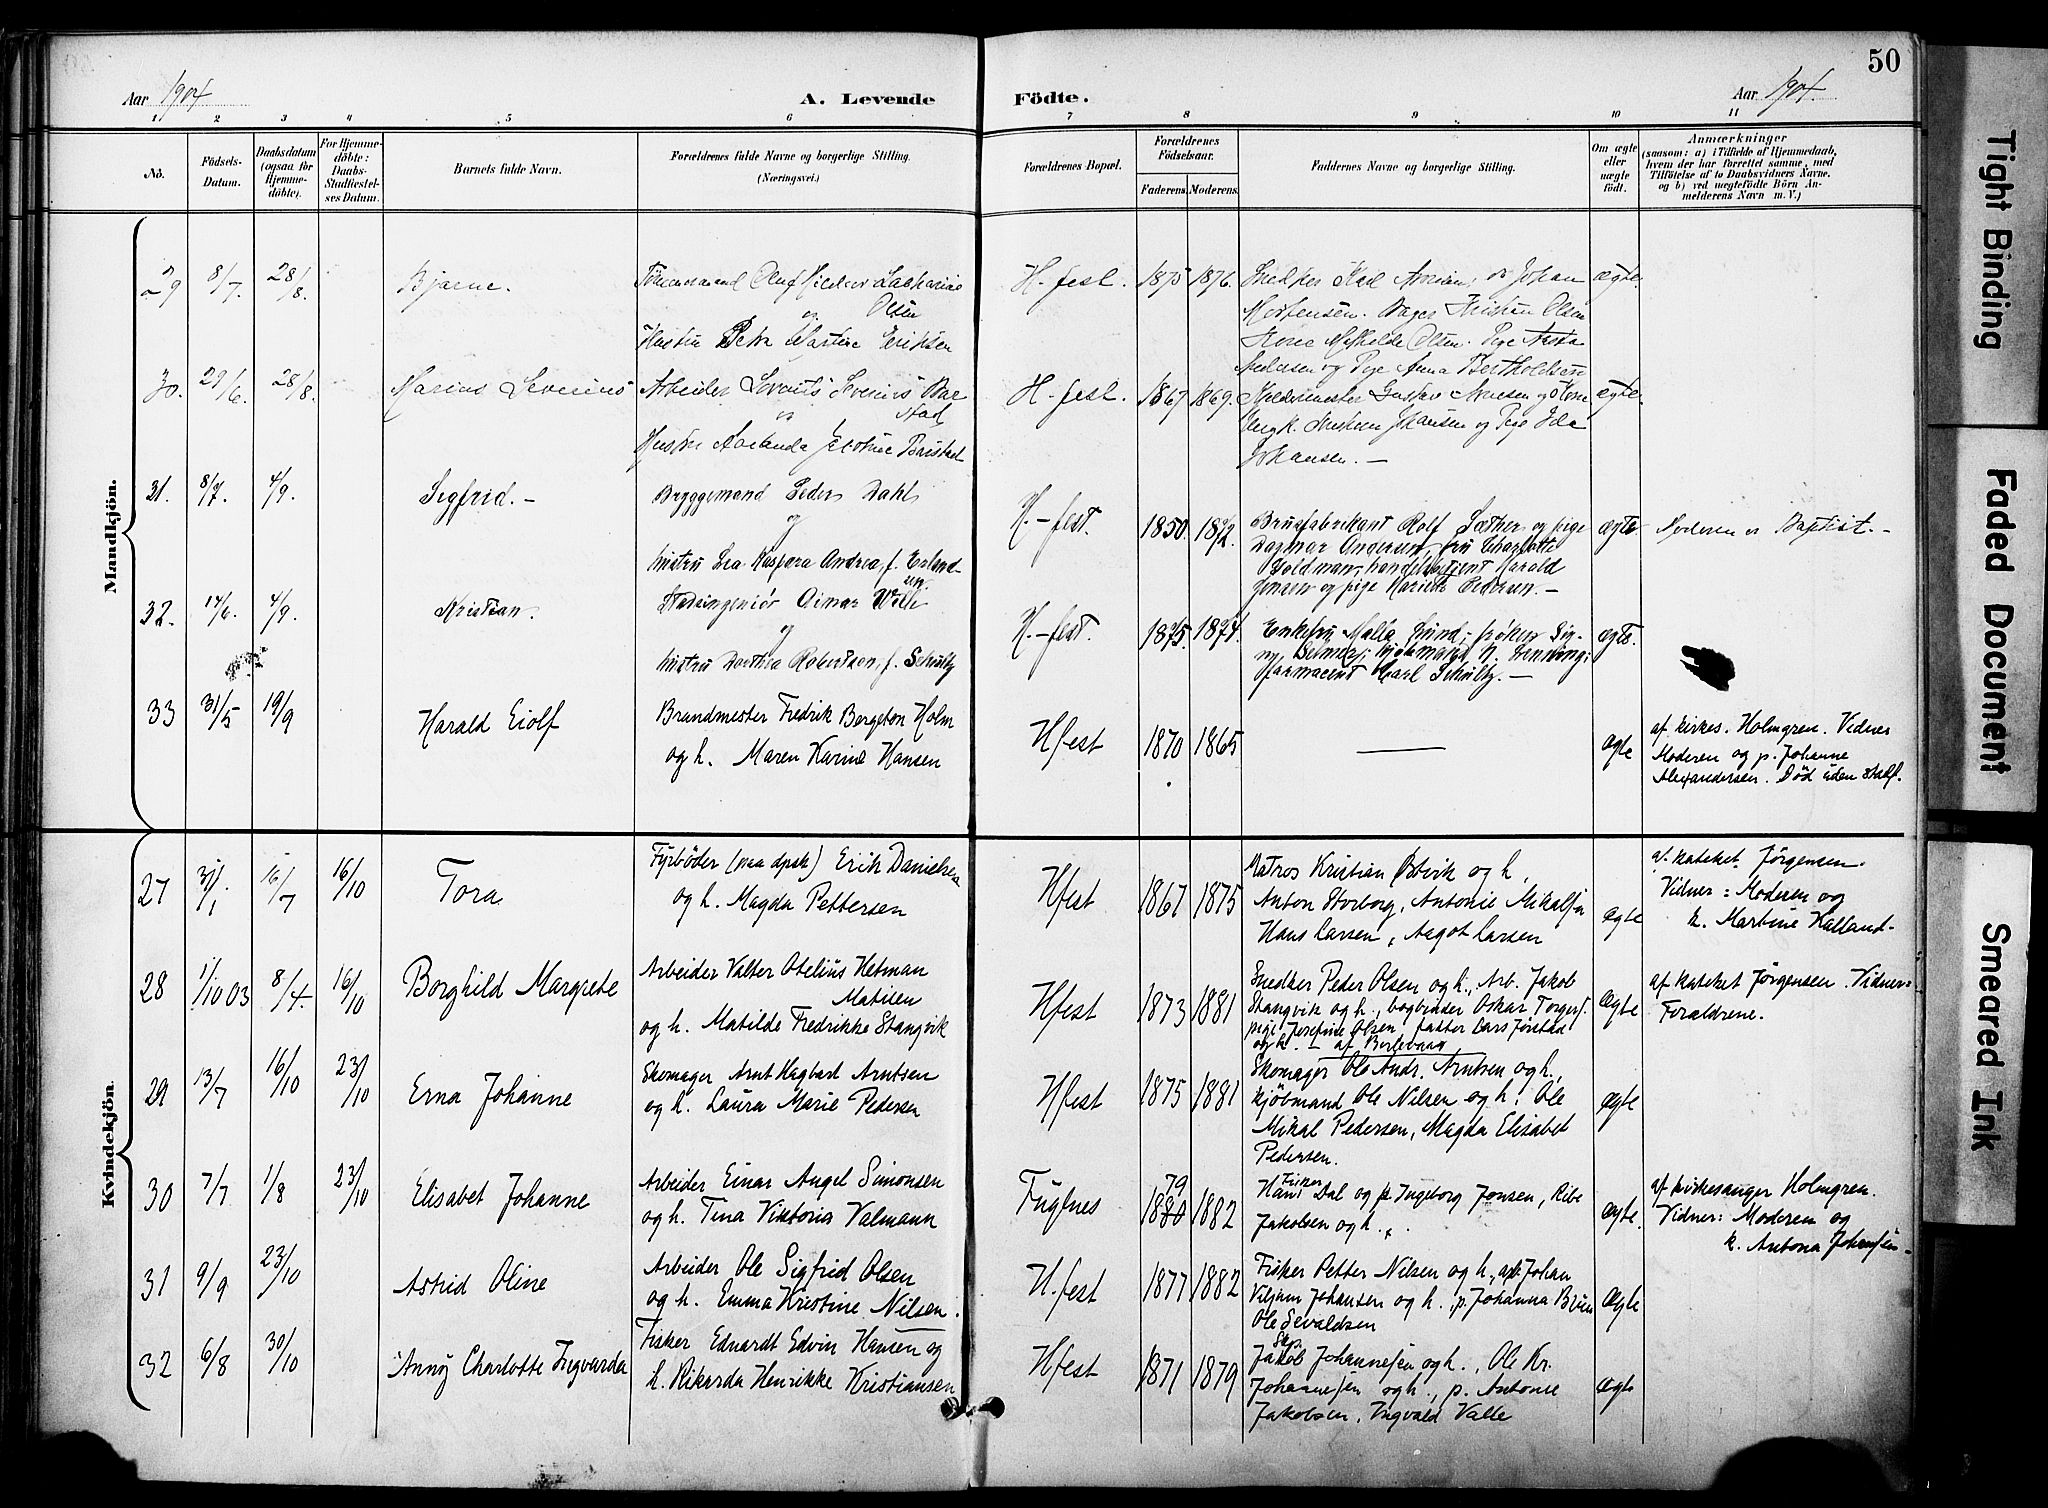 50
Aar 1904
A. Levende
Födte.
Aar 1904.
1 2 3 4 5 6 7 8 9 10 11
No.
Födsels-
Datum.
Daabsdatum
(ogsaa för
Hjemme-
döbte).
For Hjemme-
döbte:
Daabs-
Stadfæstel-
ses Datum.
Barnets fulde Navn.
Forældrenes fulde Navne og borgerlige Stilling.
(Næringsvei.)
Forældrenes Bopæl.
Forældrenes
Födselsaar.
Faderens. Moderens.
Faddernes Navne og borgerlige Stilling.
Om ægte
eller
uægte
födt.
Anmærkninger
(saasom: a) i Tilfælde af Hjemmedaab,
hvem der har forrettet samme, med
Tilföielse af to Daabsvidners Navne.
og b) ved uægtefödte Börn An-
melderens Navn m.V.)
Mandkjön.
29 8/7. 28/8. Bjarne.
Olsen
Hustru Petra Martine Eriksen
H-fest. 1875 1876.
Mortensen. Kristen Olsen
Olsen. Pige
og Pige Anna Bertholdsen
ægte
30. 29/6. 28/8. Marius Severius
Arbeider Severius
Hustru
H-fest. 1867 1869.
Gustav
Johansen og Pige Ida
Johansen. –
ægte.
31. 8/7. 4/9. Sigfrid. –
Bryggemand Peder Dahl
og
hustru Lea Kaspara Andrea, f. Erland-
sen
H.-fest. 1850. 1872.
Brusfabrikant Rolf Sæther og pige
Dagmar Andersen, fru Charlotte
Harald
Jensen og pige Pedersen. –
ægte.
Moderen er Baptist. –
32. 14/6. 4/9. Kristian.
Stadsingeniör
og
hustru Dorthea Robertson, f. Schultz
H.-fest. 1875. 1874.
Enkefru Malla Lund, fröken Sig-
Farmaceut Carl Schultz. –
ægte.
33 31/5 19/9 Harald Eiolf
Brandmester Fredrik Bergeton Holm
og h. Maren Karine Hansen
Hfest 1870 1865 —
ægte
af kirkes. Holmgren. Vidner
Moderen og p. Johanne
Alexandersen. Död uden stadf.
Kvindekjön.
27 31/1 16/7 16/10 Tora
Fyrböder (paa dpsk) Erik Danielsen
og h. Magda Pettersen
Hfest 1867 1875
Matros Kristian Østvik og h,
Anton Storborg, Antonie Mikalsen
Hans Larsen, Aagot Larsen
ægte
af kateket Jørgensen.
Vidner: Moderen og
k. Martine Kalland-
28 1/10 03 8/4. 16/10 Borghild Margrete
Arbeider Valter Otelius Hetman
Matisen
og h. Matilde Fredrikke Stangvik
Hfest 1873 1881
Snedker Peder Olsen og h., Arb. Jakob
Stangvik og h., bogbinder Oskar Torgers.
pige Josefine Olsen, Lars Jørstad
og h. – af Berlevaag
ægte
af kateket Jørgensen. Vidner:
Forældrene.
29 13/7 16/10 23/10 Erna Johanne
Skomager Arnt Hagbart Arntsen
og h. Laura Marie Pedersen
Hfest 1875 1881
Skomager Ole Andr. Arntsen og h.,
kjøbmand Ole Nilsen og h. Ole
Mikal Pedersen, Magda Elisabet
Pedersen.
ægte
30 7/7 1/8 23/10 Elisabet Johanne
Arbeider Einar Angel Simonsen
og h. Tina Viktoria Valmann
Fuglnes 1880 79 1882
Fisker
Hans Dal og p. Ingeborg Jensen,
Jakobsen og h.
ægte.
af kirkesanger Holmgren.
Vidner: Moderen og
k. Antona Johansen-
31 9/9 23/10 Astrid Oline
Arbeider Ole Sigfrid Olsen
og h. Emma Kristine Nilsen.
H.fest 1877 1882
Fisker Petter Nilsen og h., arb. Johan
Viljam Johansen og h., p. Johanna
Ole Sevaldsen
ægte
32 6/8 30/10 Anny Charlotte Ingvarda
Fisker Edvardt Edvin Hansen og
h. Rikarda Henrikke Kristiansen
Hfest 1871 1879
Jakob Johannesen og h., Ole Kr.
Johannesen og h., p. Antonie
Jakobsen, Ingvald Valle
ægte
Tight Binding
Faded Document
Smeared Ink